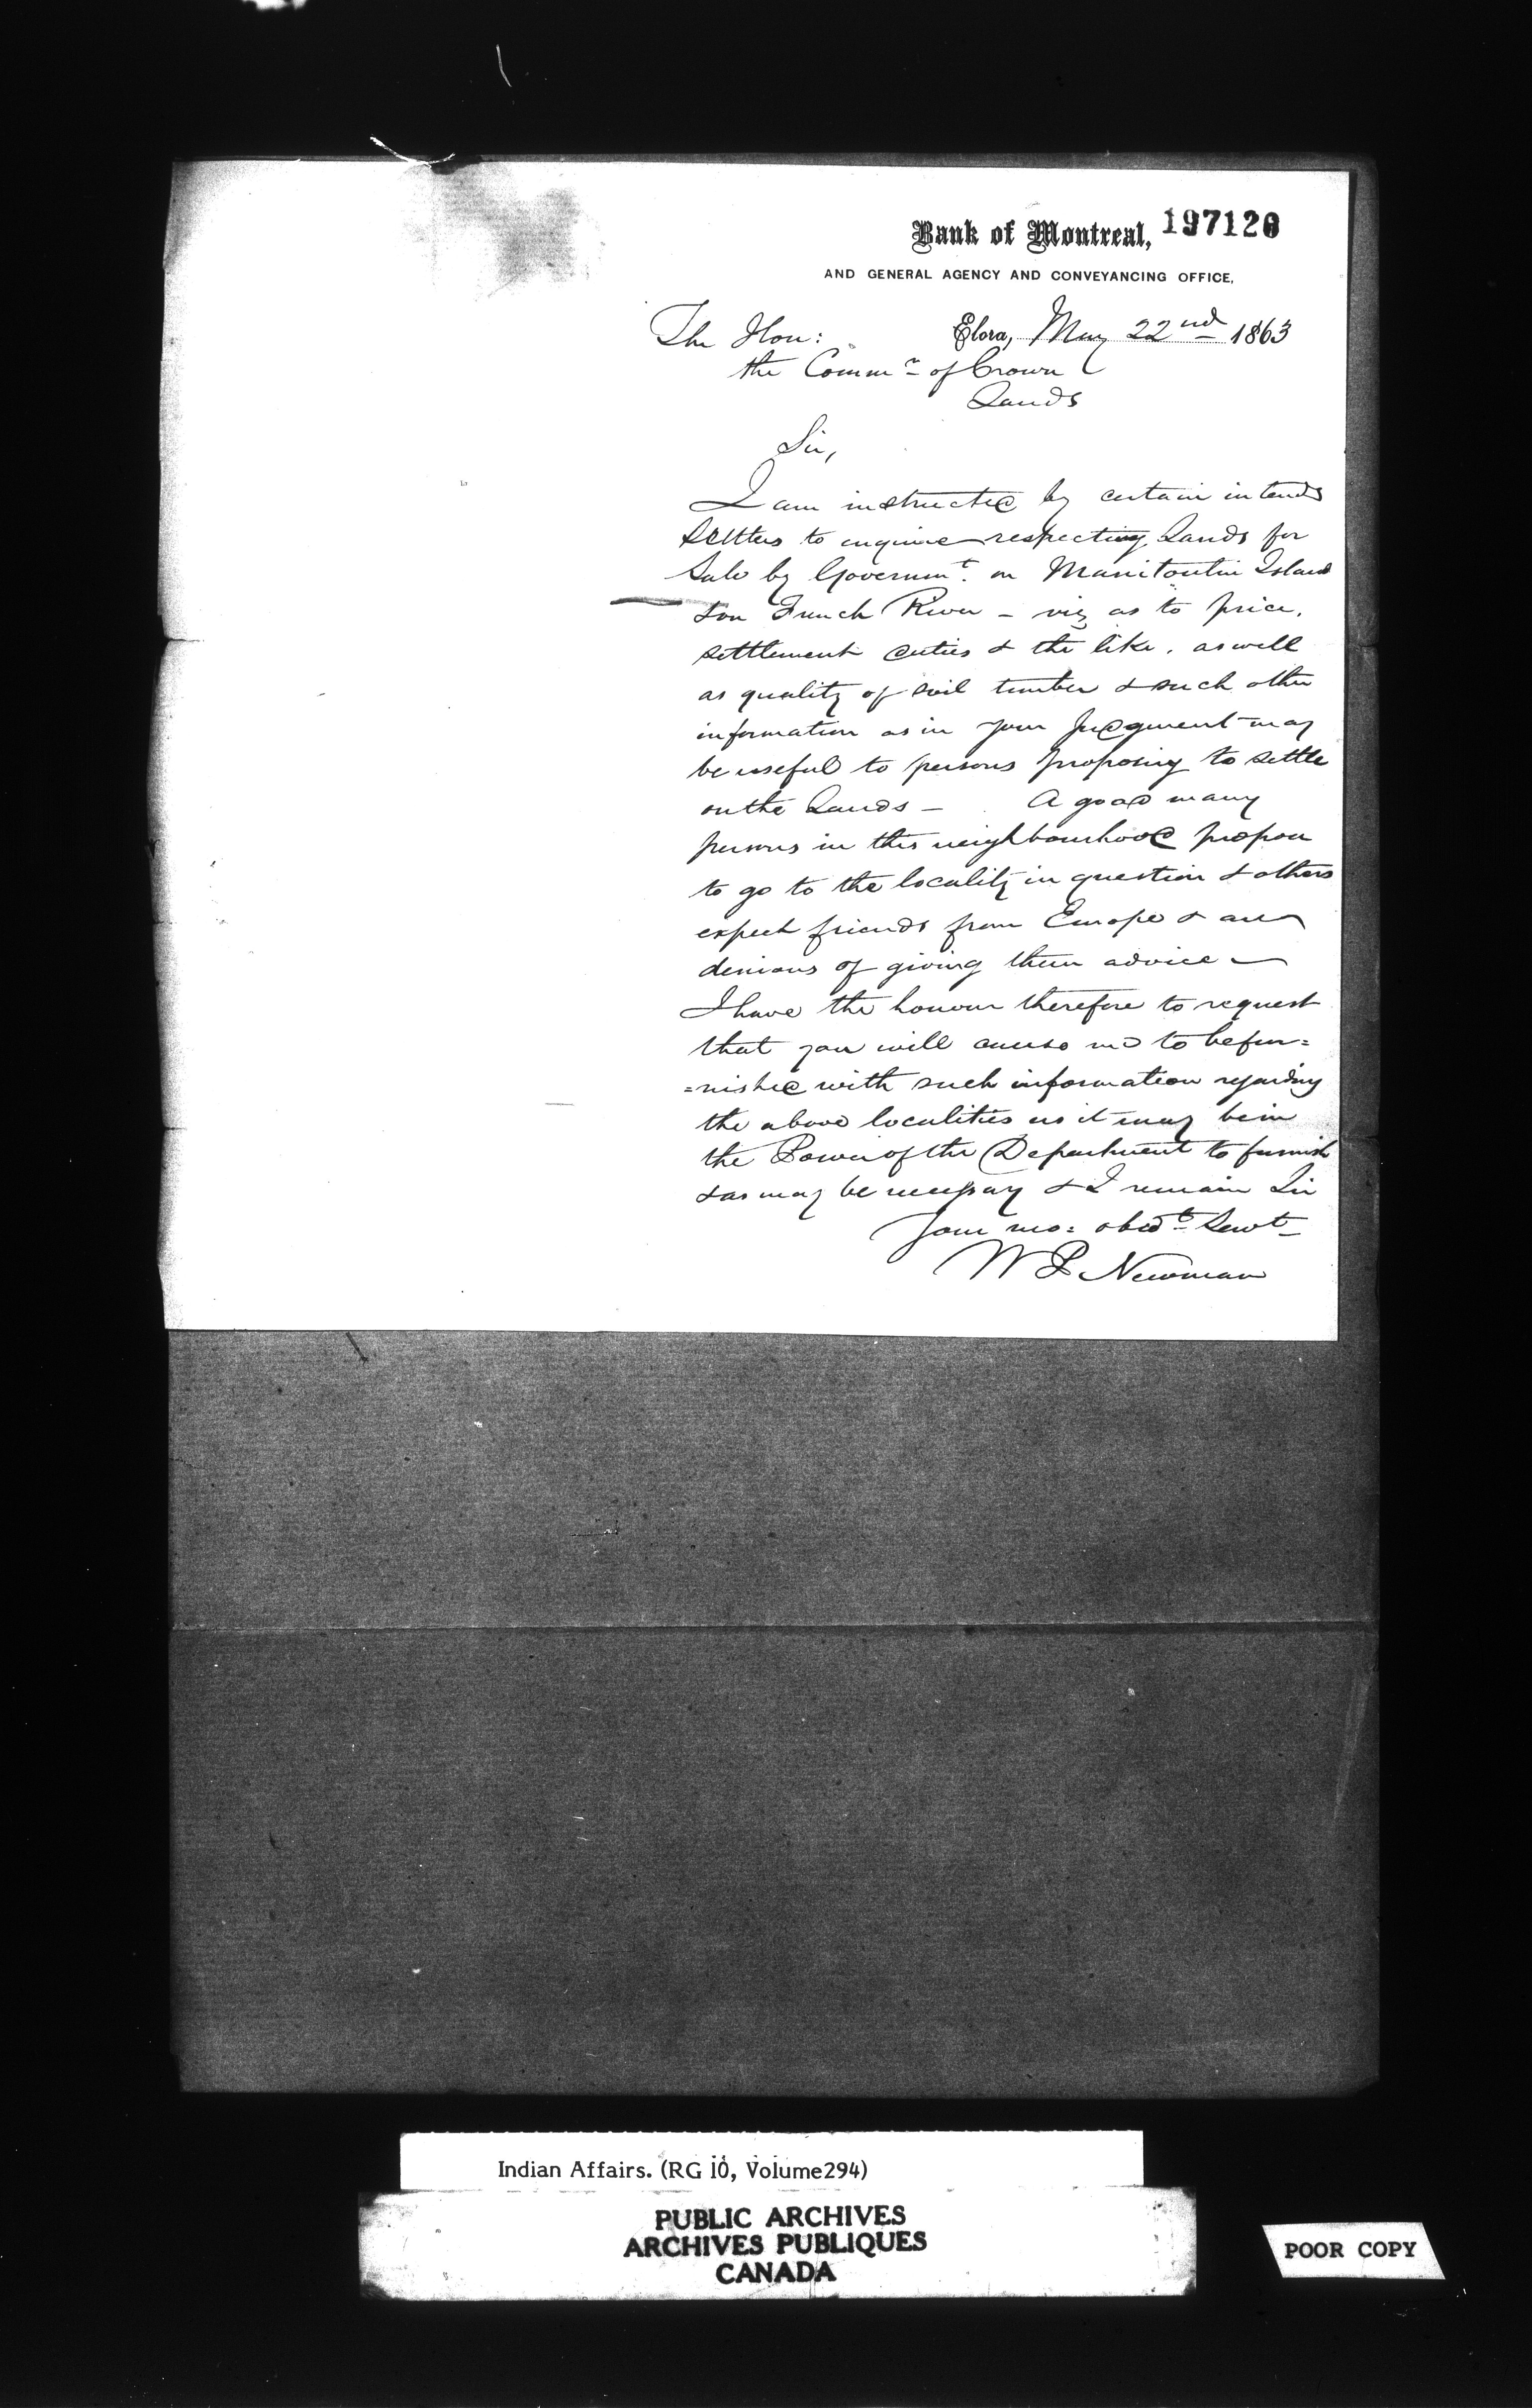 Bank of Montreal, 197120
AND GENERAL AGENCY AND CONVEYANCING OFFICE,
The Hon: Elora, May 22nd 1863
the Commr of Crown
Lands
Sir,
I am instructed by certain intends
settlers to enquire respecting Lands for
Sale by Governmt. on Manitoulin Island
& on French River - viz as to price,
settlement duties & the like, as well
as quality of soil timber & such other
information as in your Judgment may
be useful to persons proposing to settle
on the Lands - A good many
persons in this neighbourhood propose
to go to the locality in question & others
expect friends from Europe & are
desirous of giving them advice -
I have the honour therefore to request
that you will cause me to be fur=
=nished with such information regarding
the above localities as it may be in
the Power of the Department to furnish
& as may be necessary & I remain Sir
Your mo: obedt Servt
W P Newman
Indian Affairs. (RG 10, Volume294)
PUBLIC ARCHIVES
ARCHIVES PUBLIQUES
CANADA
POOR COPY